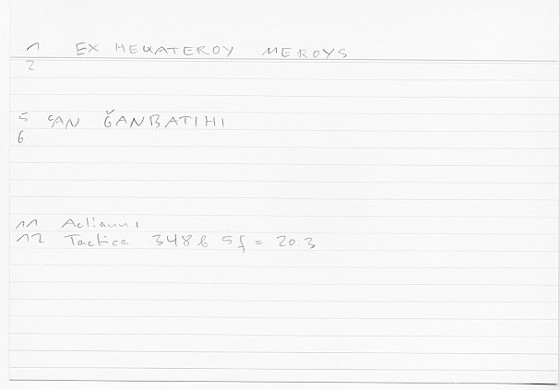 1 EX HEKATEROY MEROYS
2
5 ʿAN ǦANBATIHI
6
11 Aelianus
12 Tactica 348b 5f = 20 3